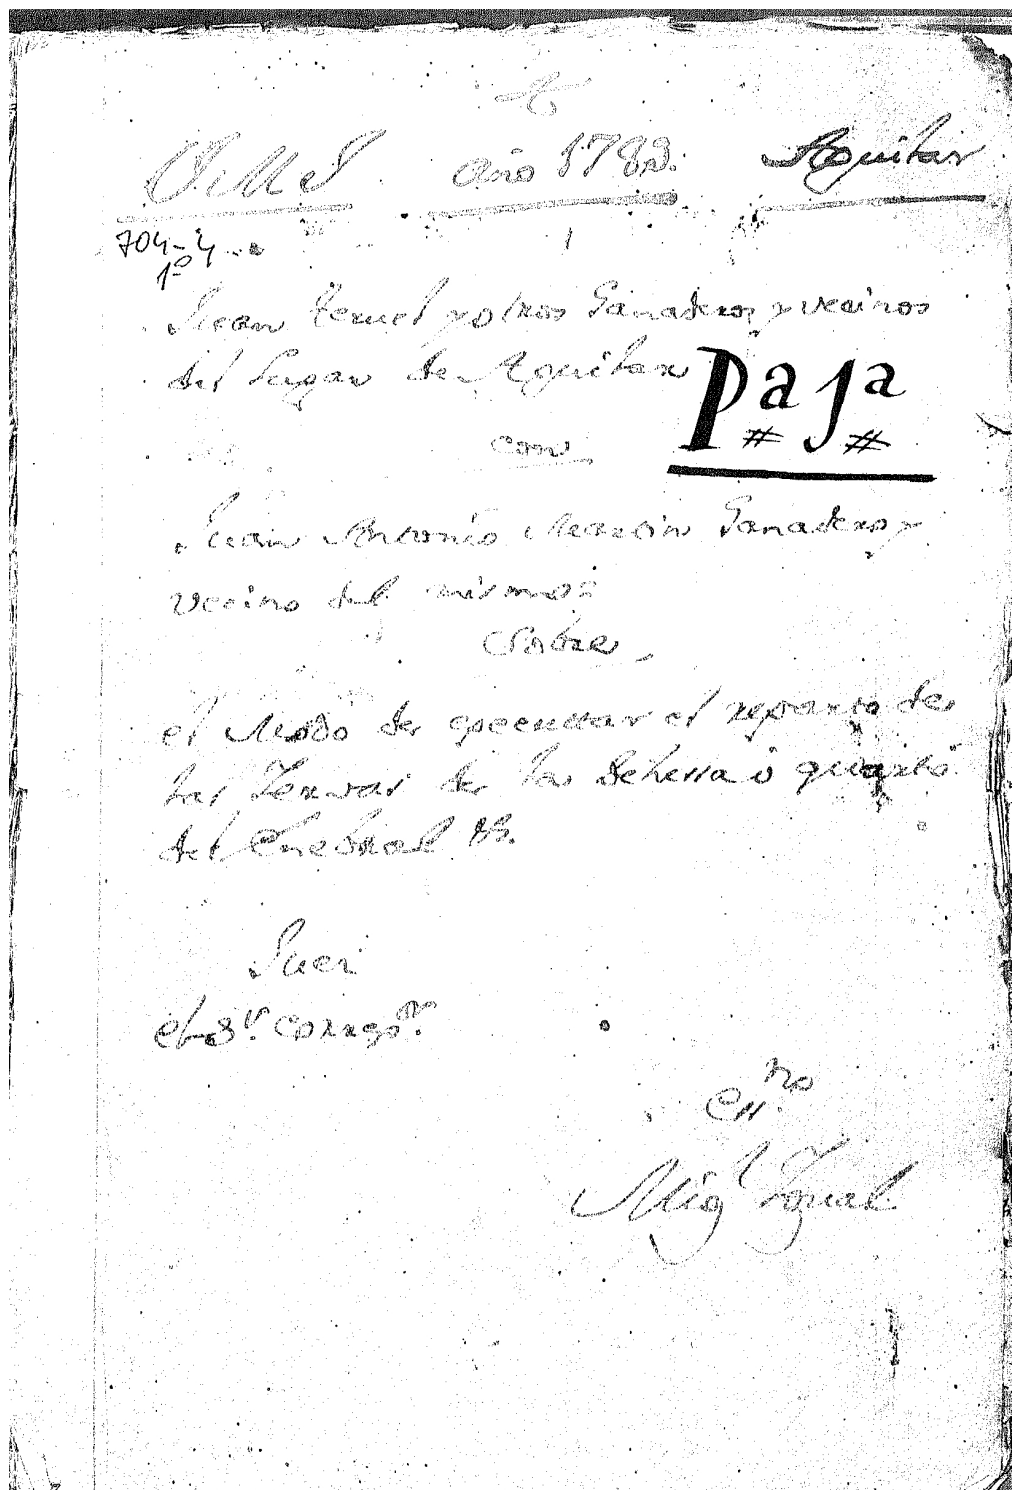 J. M. S. año 1783. Aguilar
704-4
1º
Juan Teruel y otros Ganaderos y vecinos
del Lugar de Aguilar
Paja
con
Juan Antonio Martin Ganadero y
vecino del mismo
Sobre
el Modo de executar el reparto de
las Yervas de la Dehessa ó quarto
del Enebral &.
Juez
el Sr. Corregor.
Essno
Migl Igual